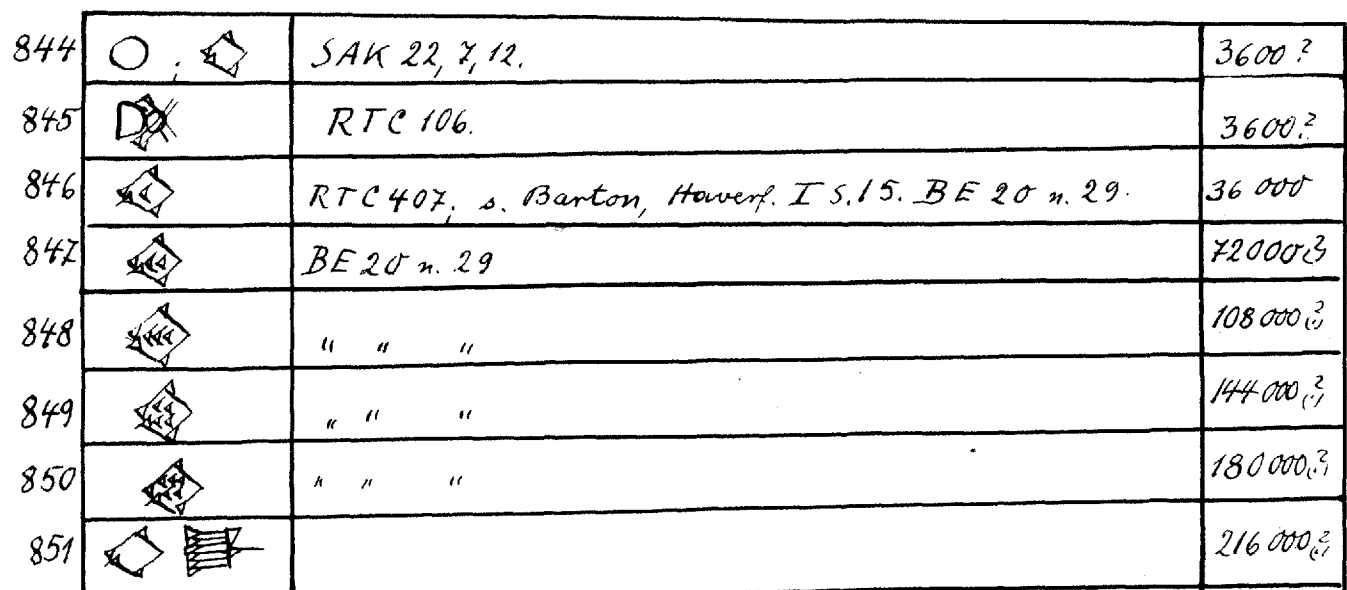 844 SAK 22, 7, 12. 3600?
845 RTC 106. 3600?
846 RTC 407, s. Barton, Haverf. I S. 15. BE 20 n. 29. 36 000
847 BE 20 n. 29 72000(?)
848 " " " 108 000(?)
849 " " " 144 000(?)
850 " " " 180 000(?)
851 216 000(?)